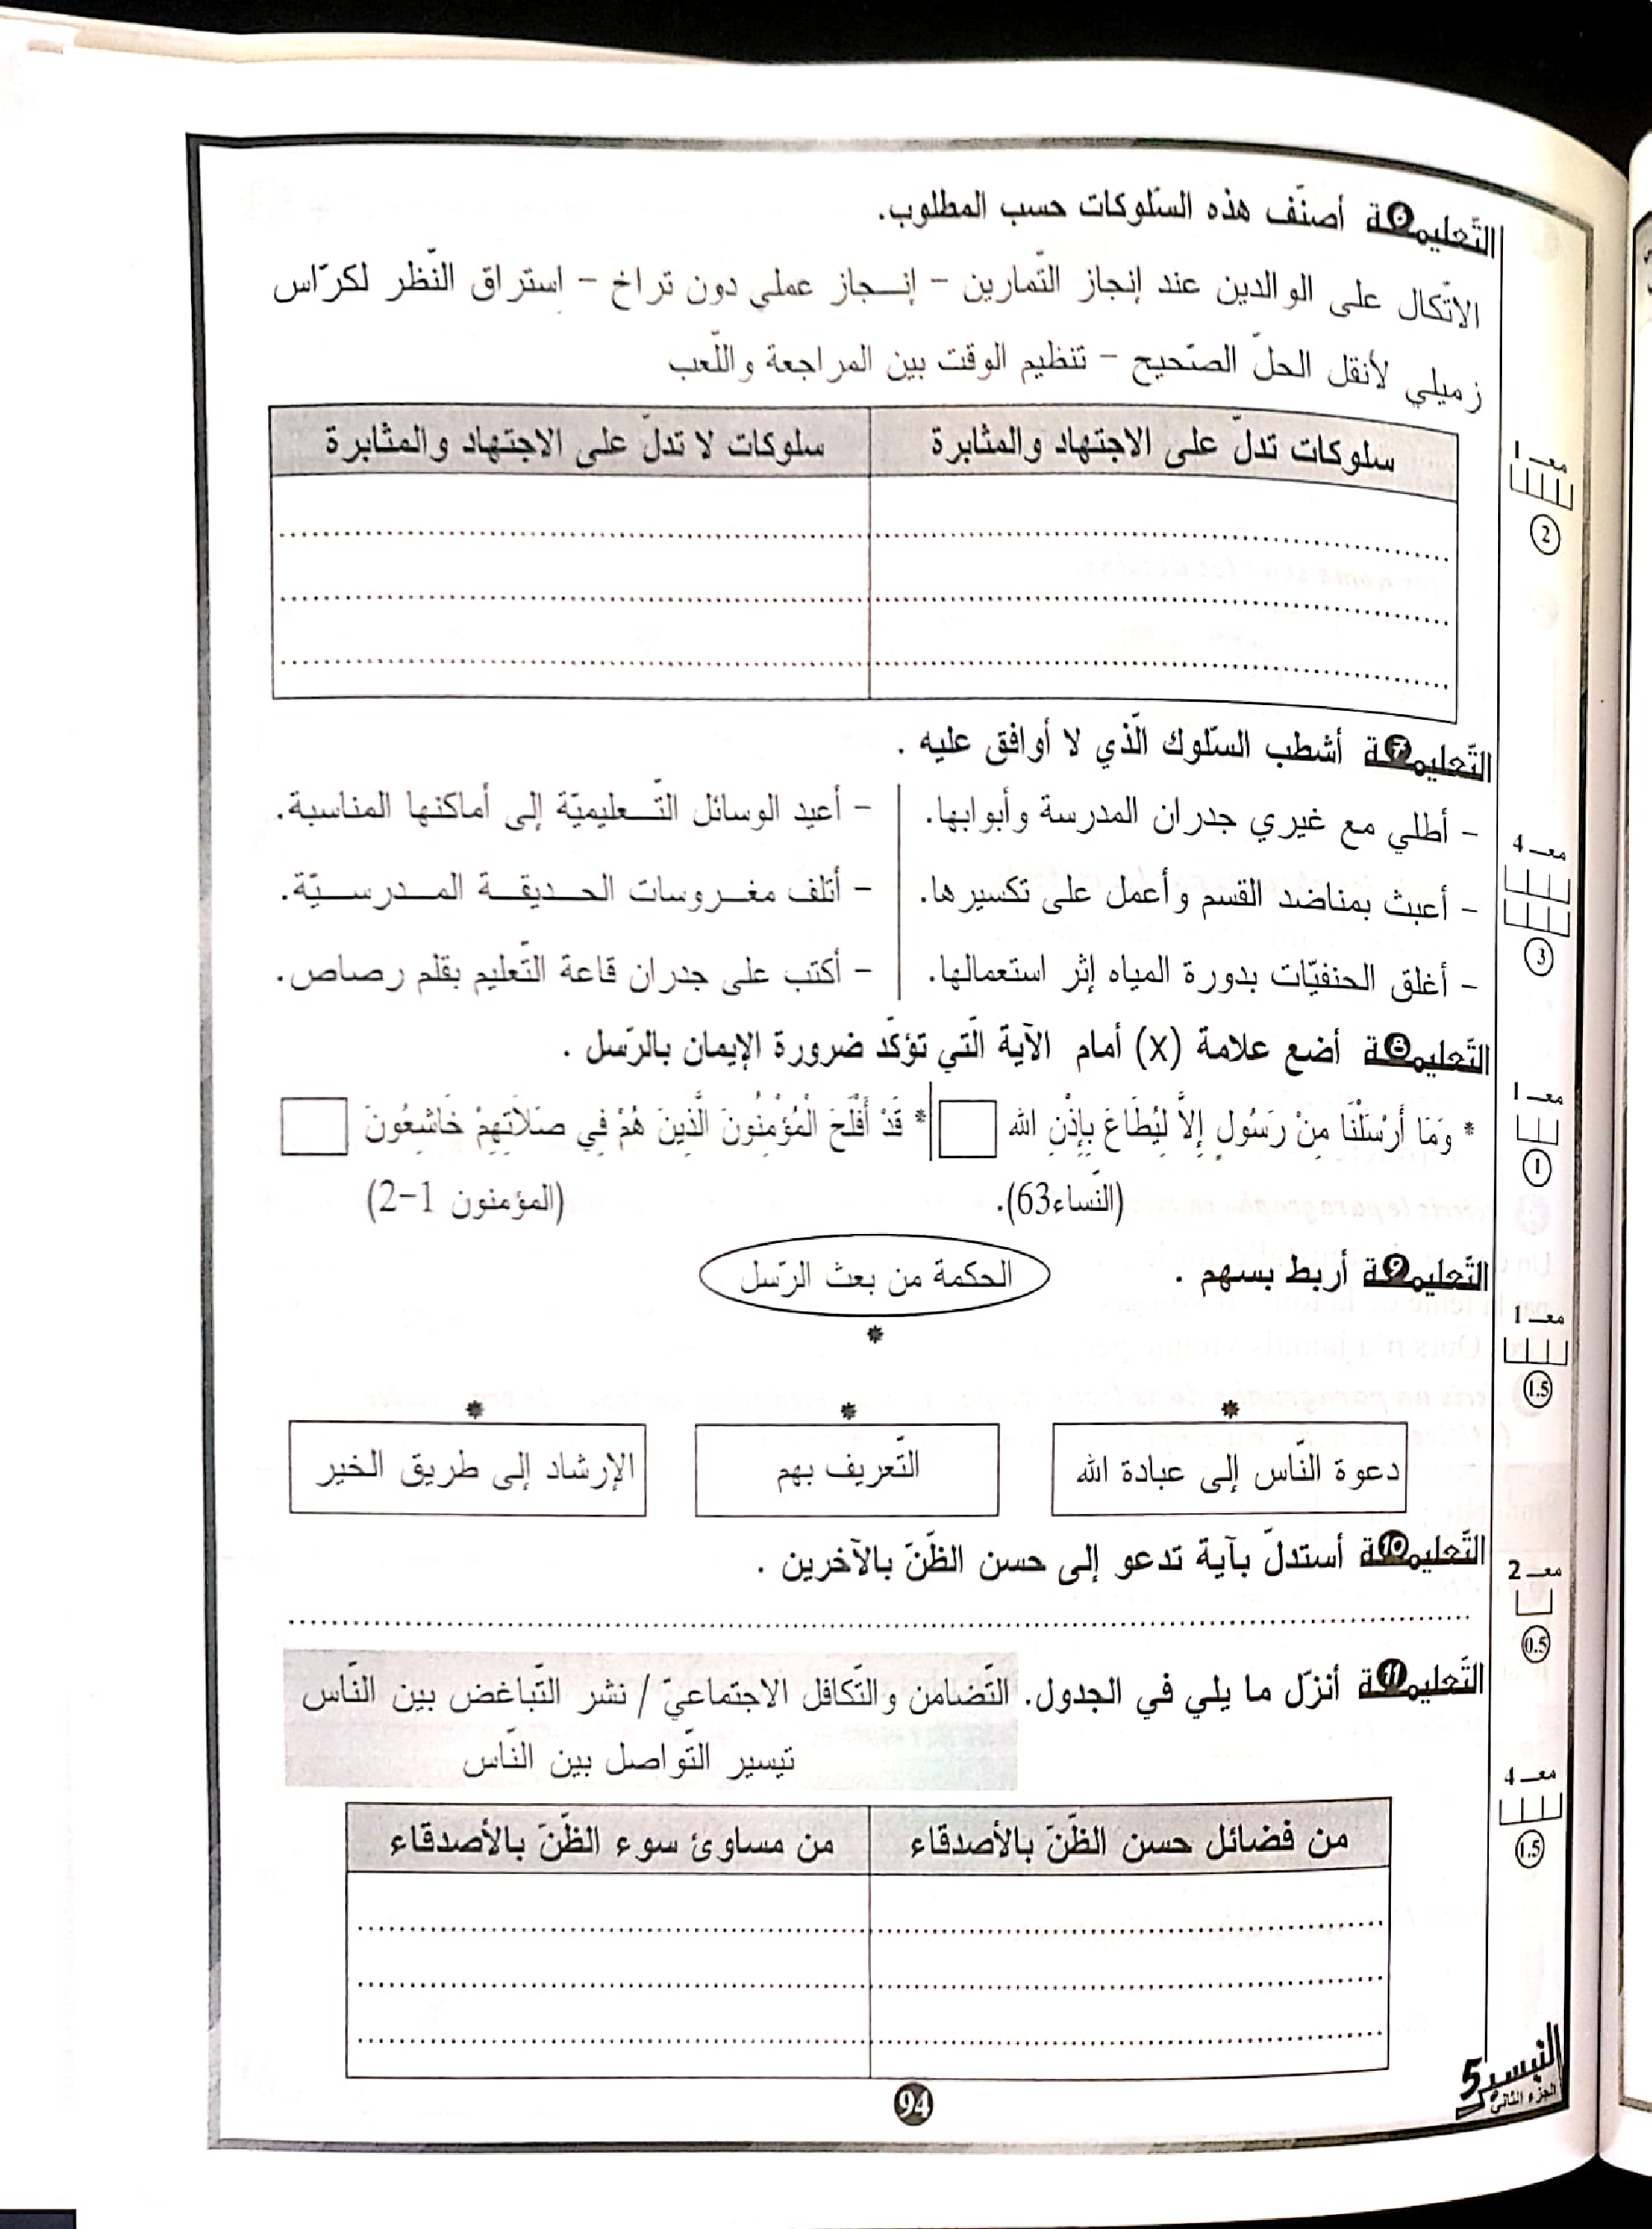 التّعليمـ6ـة أصنّف هذه السّلوكات حسب المطلوب.
الاتّكال على الوالدين عند إنجاز التّمارين - إنـجاز عملي دون تراخ - استراق النّظر لكرّاس
زميلي لأنقل الحلّ الصّحيح - تنظيم الوقت بين المراجعة واللّعب
معـ 1
2
سلوكات تدلّ على الاجتهاد والمثابرة
سلوكات لا تدلّ على الاجتهاد والمثابرة
التّعليمـ7ـة أشطب السّلوك الّذي لا أوافق عليه .
معـ 4
3
- أطلي مع غيري جدران المدرسة وأبوابها.
- أعبث بمناضد القسم وأعمل على تكسيرها.
- أغلق الحنفيّات بدورة المياه إثر استعمالها.
- أعيد الوسائل التّـعليميّة إلى أماكنها المناسبة.
- أتلف مغـروسات الحـديقـة المـدرسـيّة.
- أكتب على جدران قاعة التّعليم بقلم رصاص.
التّعليمـ8ـة أضع علامة (x) أمام الآية الّتي تؤكّد ضرورة الإيمان بالرّسل .
معـ 1
1
* وَمَا أَرْسَلْنَا مِنْ رَسُولٍ إِلاَّ لِيُطَاعَ بِإِذْنِ الله
(النّساء63).
* قَدْ أَفْلَحَ الْمُؤْمِنُونَ الَّذِينَ هُمْ فِي صَلَاتِهِمْ خَاشِعُونَ
(المؤمنون 1-2)
التّعليمـ9ـة أربط بسهم .
الحكمة من بعث الرّسل
*
معـ 1
1.5
* * *
دعوة النّاس إلى عبادة الله
التّعريف بهم
الإرشاد إلى طريق الخير
التّعليمـ10ـة أستدلّ بآية تدعو إلى حسن الظّنّ بالآخرين .
معـ 2
0.5
التّعليمـ11ـة أنزّل ما يلي في الجدول. التّضامن والتّكافل الاجتماعيّ / نشر التّباغض بين النّاس
تيسير التّواصل بين النّاس
معـ 4
1.5
من فضائل حسن الظّنّ بالأصدقاء
من مساوئ سوء الظّنّ بالأصدقاء
94
التيسير 5
الجزء الثاني